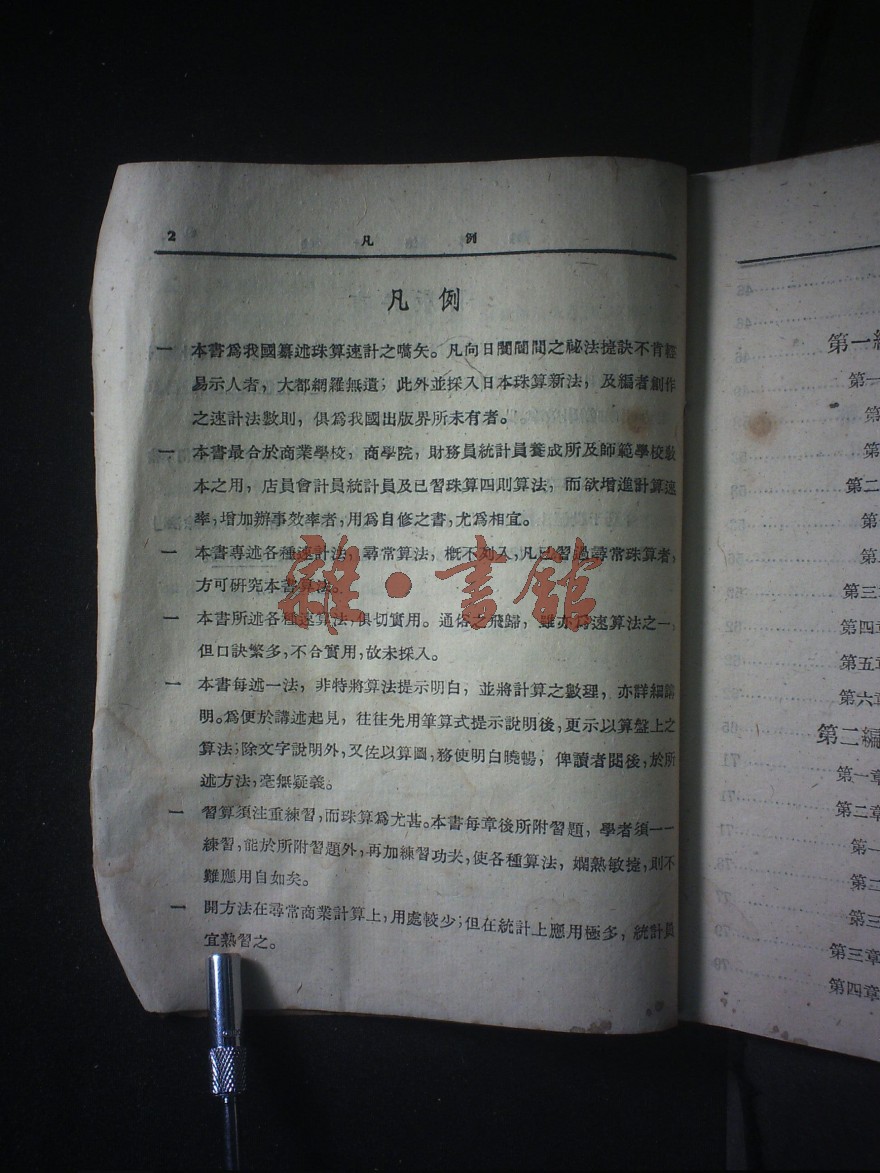 2 凡 例
凡 例
一 本書爲我國纂述珠算速計之嚆矢。凡向日闤闠間之祕法捷訣不肯輕
易示人者，大都網羅無遺；此外並採入日本珠算新法，及編者創作
之速計法數則，俱爲我國出版界所未有者。
一 本書最合於商業學校，商學院，財務員統計員養成所及師範學校敎
本之用，店員會計員統計員及已習珠算四則算法，而欲增進計算速
率，增加辦事效率者，用爲自修之書，尤爲相宜。
一 本書專述各種速計法，尋常算法，槪不列入，凡已習過尋常珠算者，
方可研究本書算法。
一 本書所述各種速算法，俱切實用。通俗之飛歸，雖亦爲速算法之一，
但口訣繁多，不合實用，故未採入。
一 本書每述一法，非特將算法提示明白，並將計算之數理，亦詳細闡
明。爲便於講述起見，往往先用筆算式提示說明後，更示以算盤上之
算法；除文字說明外，又佐以算圖，務使明白曉暢，俾讀者閱後，於所
述方法，毫無疑義。
一 習算須注重練習，而珠算爲尤甚。本書每章後所附習題，學者須一一
練習，能於所附習題外，再加練習功夫，使各種算法，嫻熟敏捷，則不
難應用自如矣。
一 開方法在尋常商業計算上，用處較少；但在統計上應用極多，統計員
宜熟習之。
雜·書館
第一編
第一
第
第
第二
第
第二
第三
第四章
第五章
第六章
第二編
第一章
第二章
第一
第二
第三
第三章
第四章